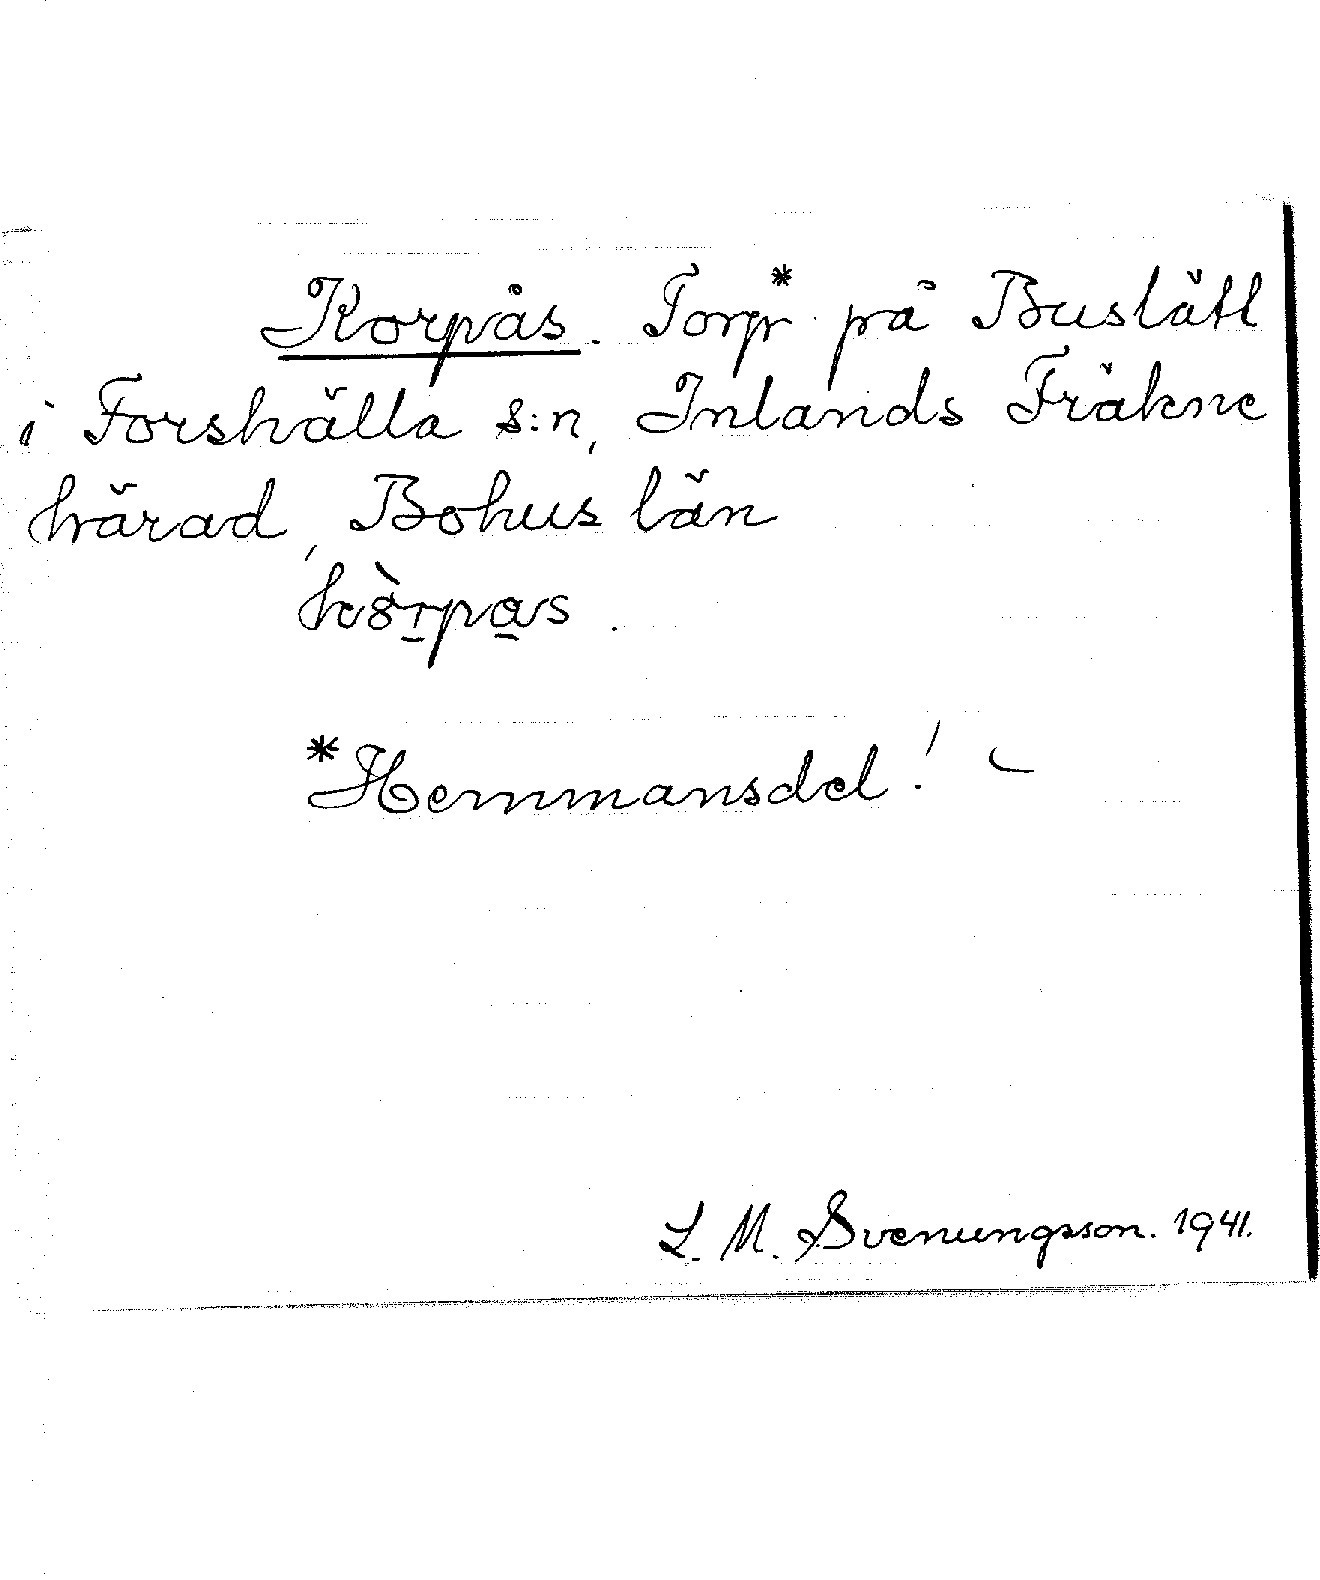 Korpås. Torp* på Buslätt
i Forshälla s:n, Inlands Fräkne
härad, Bohus län
*Hemmansdel!
L. M. Svenungsson. 1941.